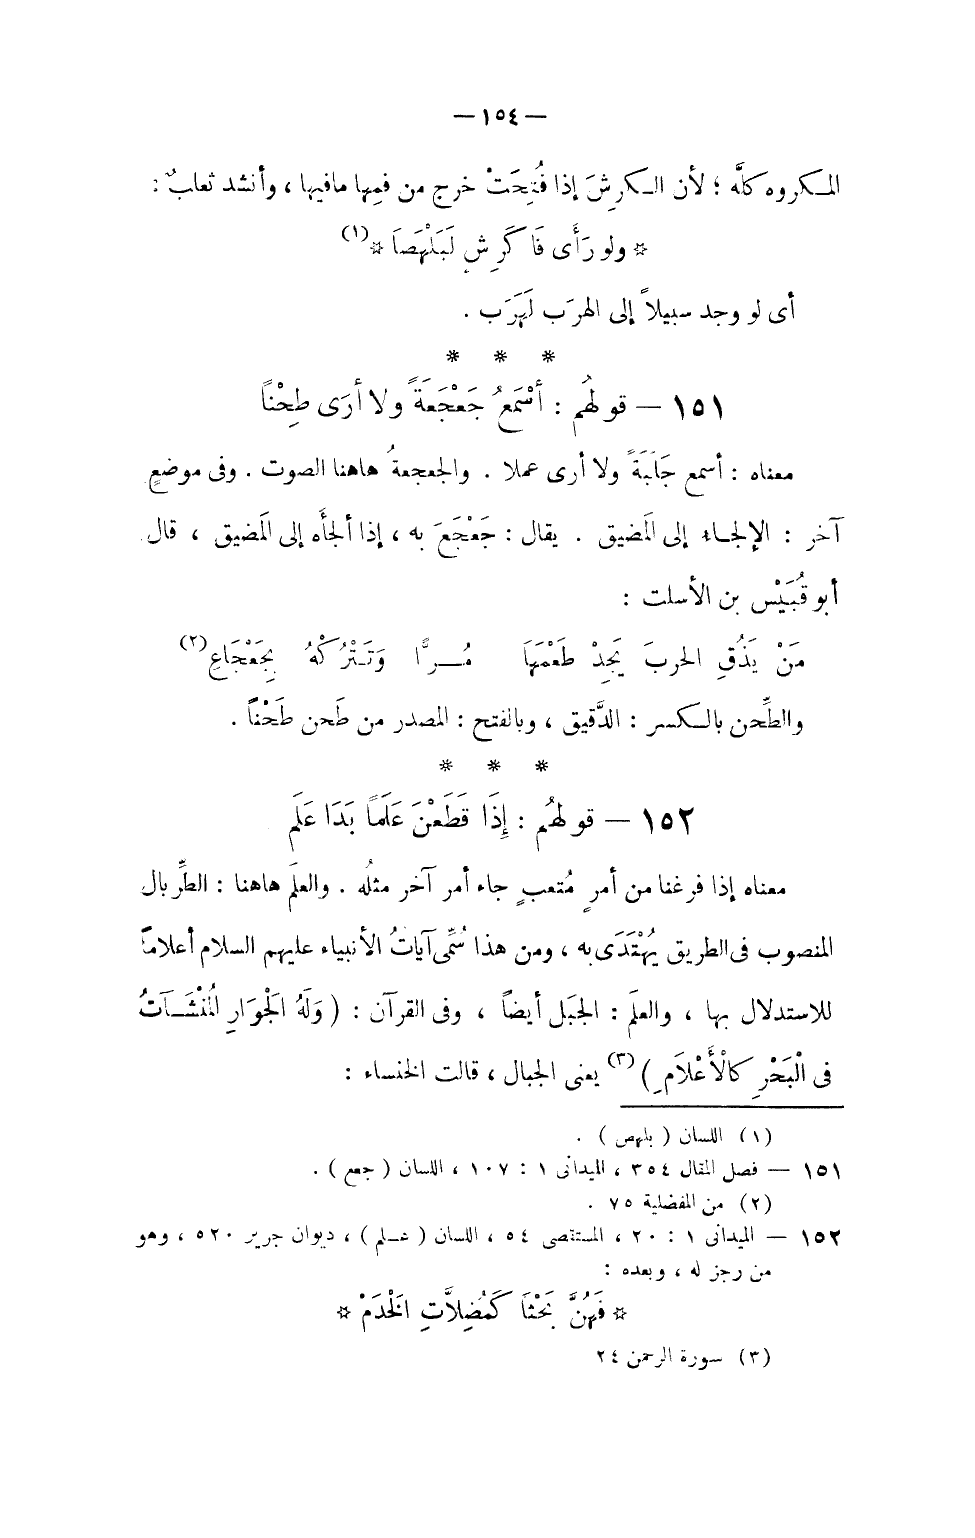 — ١٥٤ —
المكروه كلَّه ؛ لأن الكرشَ إذا فُتِحَتْ خرج من فمِها مافيها ، وأنشد ثعلبٌ :
* ولو رَأَى فَا كَرِشٍ لَبَلْهَصَا * (١)
أى لو وجد سبيلاً إلى الهرَب لَهَرَب .
* * *
١٥١ — قولهُم : أَسْمَعُ جَعْجَعَةً ولا أرَى طِحْناً
معناه : أسمع جَلَبَةً ولا أرى عملا . والجعجعةُ هاهنا الصوت . وفى موضعٍ
آخر : الإلجاء إلى المَضيق . يقال : جَعْجَعَ به ، إذا ألجأَه إلى المَضيق ، قال
أبو قُبَيْس بن الأسلت :
مَنْ يَذُقِ الحربَ يَجِدْ طَعْمَهَا مُرًّا وَتَتْرُكْهُ بِجَعْجَاعِ (٢)
والطِّحن بالكسر : الدَّقيق ، وبالفتح : المصدر من طَحن طَحْناً .
* * *
١٥٢ — قولهُم : إِذَا قَطَعْنَ عَلَمًا بَدَا عَلَم
معناه إذا فرغنا من أمرٍ مُتعبٍ جاء أمر آخر مثلُه . والعلَم هاهنا : الطِّربال
المنصوب فى الطريق يُهْتَدَى به ، ومن هذا سُمِّى آياتُ الأنبياء عليهم السلام أعلاماً
للاستدلال بها ، والعلَم : الجبَل أيضاً ، وفى القرآن : ( وَلَهُ الْجَوَارِ الْمُنْشَآتُ
فى الْبَحْرِ كَالْأَعْلَامِ ) (٣) يعنى الجبال ، قالت الخنساء :
(١) اللسان ( بلهص ) .
١٥١ — فصل المقال ٣٥٤ ، الميدانى ١ : ١٠٧ ، اللسان ( جعع ) .
(٢) من المفضلية ٧٥ .
١٥٢ — الميدانى ١ : ٢٠ ، المستقصى ٥٤ ، اللسان ( علم ) ، ديوان جرير ٥٢٠ ، وهو
من رجز له ، وبعده :
* فَهُنَّ بَحْثًا كَمُضِلَّاتِ الْخَدَمْ *
(٣) سورة الرحمن ٢٤